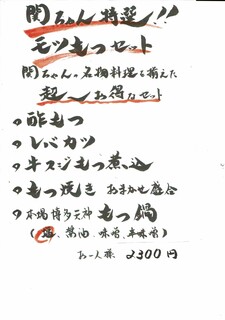 関ちゃん特選!!
モツもつセット
関ちゃんの名物料理を揃えた
超〜お得なセット
酢もつ
レバカツ
牛スジもつ煮込
もつ焼き おまかせ盛合
本場博多天神 もつ鍋
(塩、醤油、味噌、辛味噌)
お一人様 2300円